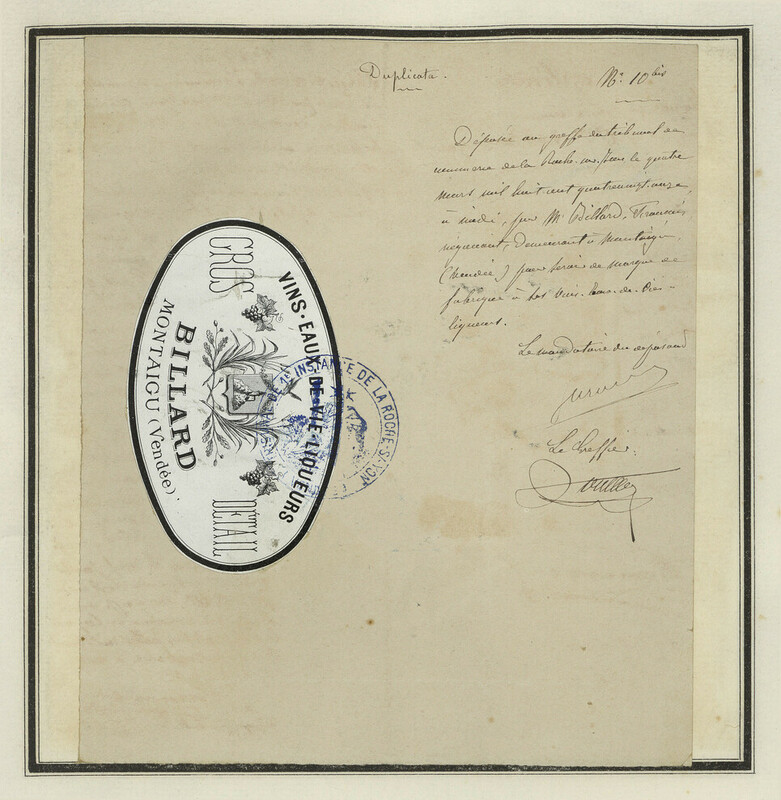 Duplicata.
N° 10 bis
Déposée au greffe du tribunal de
commerce de la Roche-sur-Yon le quatre
mars mil huit cent quatrevingt-onze
à midi, par M. Billard, François,
négociant, demeurant à Montaigu
(Vendée) pour servir de marque de
fabrique à ses vins, eaux-de-vie &
liqueurs.
Le mandataire du déposant
Le Greffier.
VINS·EAUX·DE·VIE·LIQUEURS
GROS
DÉTAIL
BILLARD
MONTAIGU (Vendée).
DE 1E INSTANCE DE LA ROCHE-S-YON